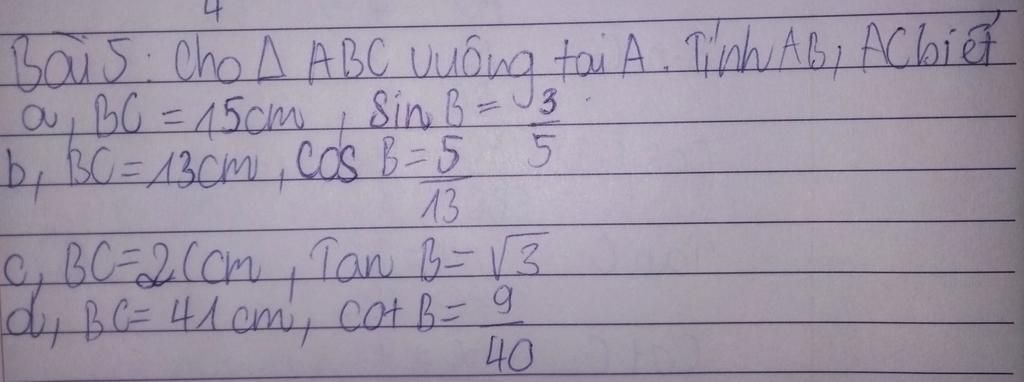 4
Bài 5: Cho Δ ABC vuông tại A. Tính AB, AC biết
a, BC = 15cm, sin B = 3/5
b, BC = 13cm, cos B = 5/13
c, BC = 2(cm, Tan B = √3
d, BC = 41cm, cot B = 9/40